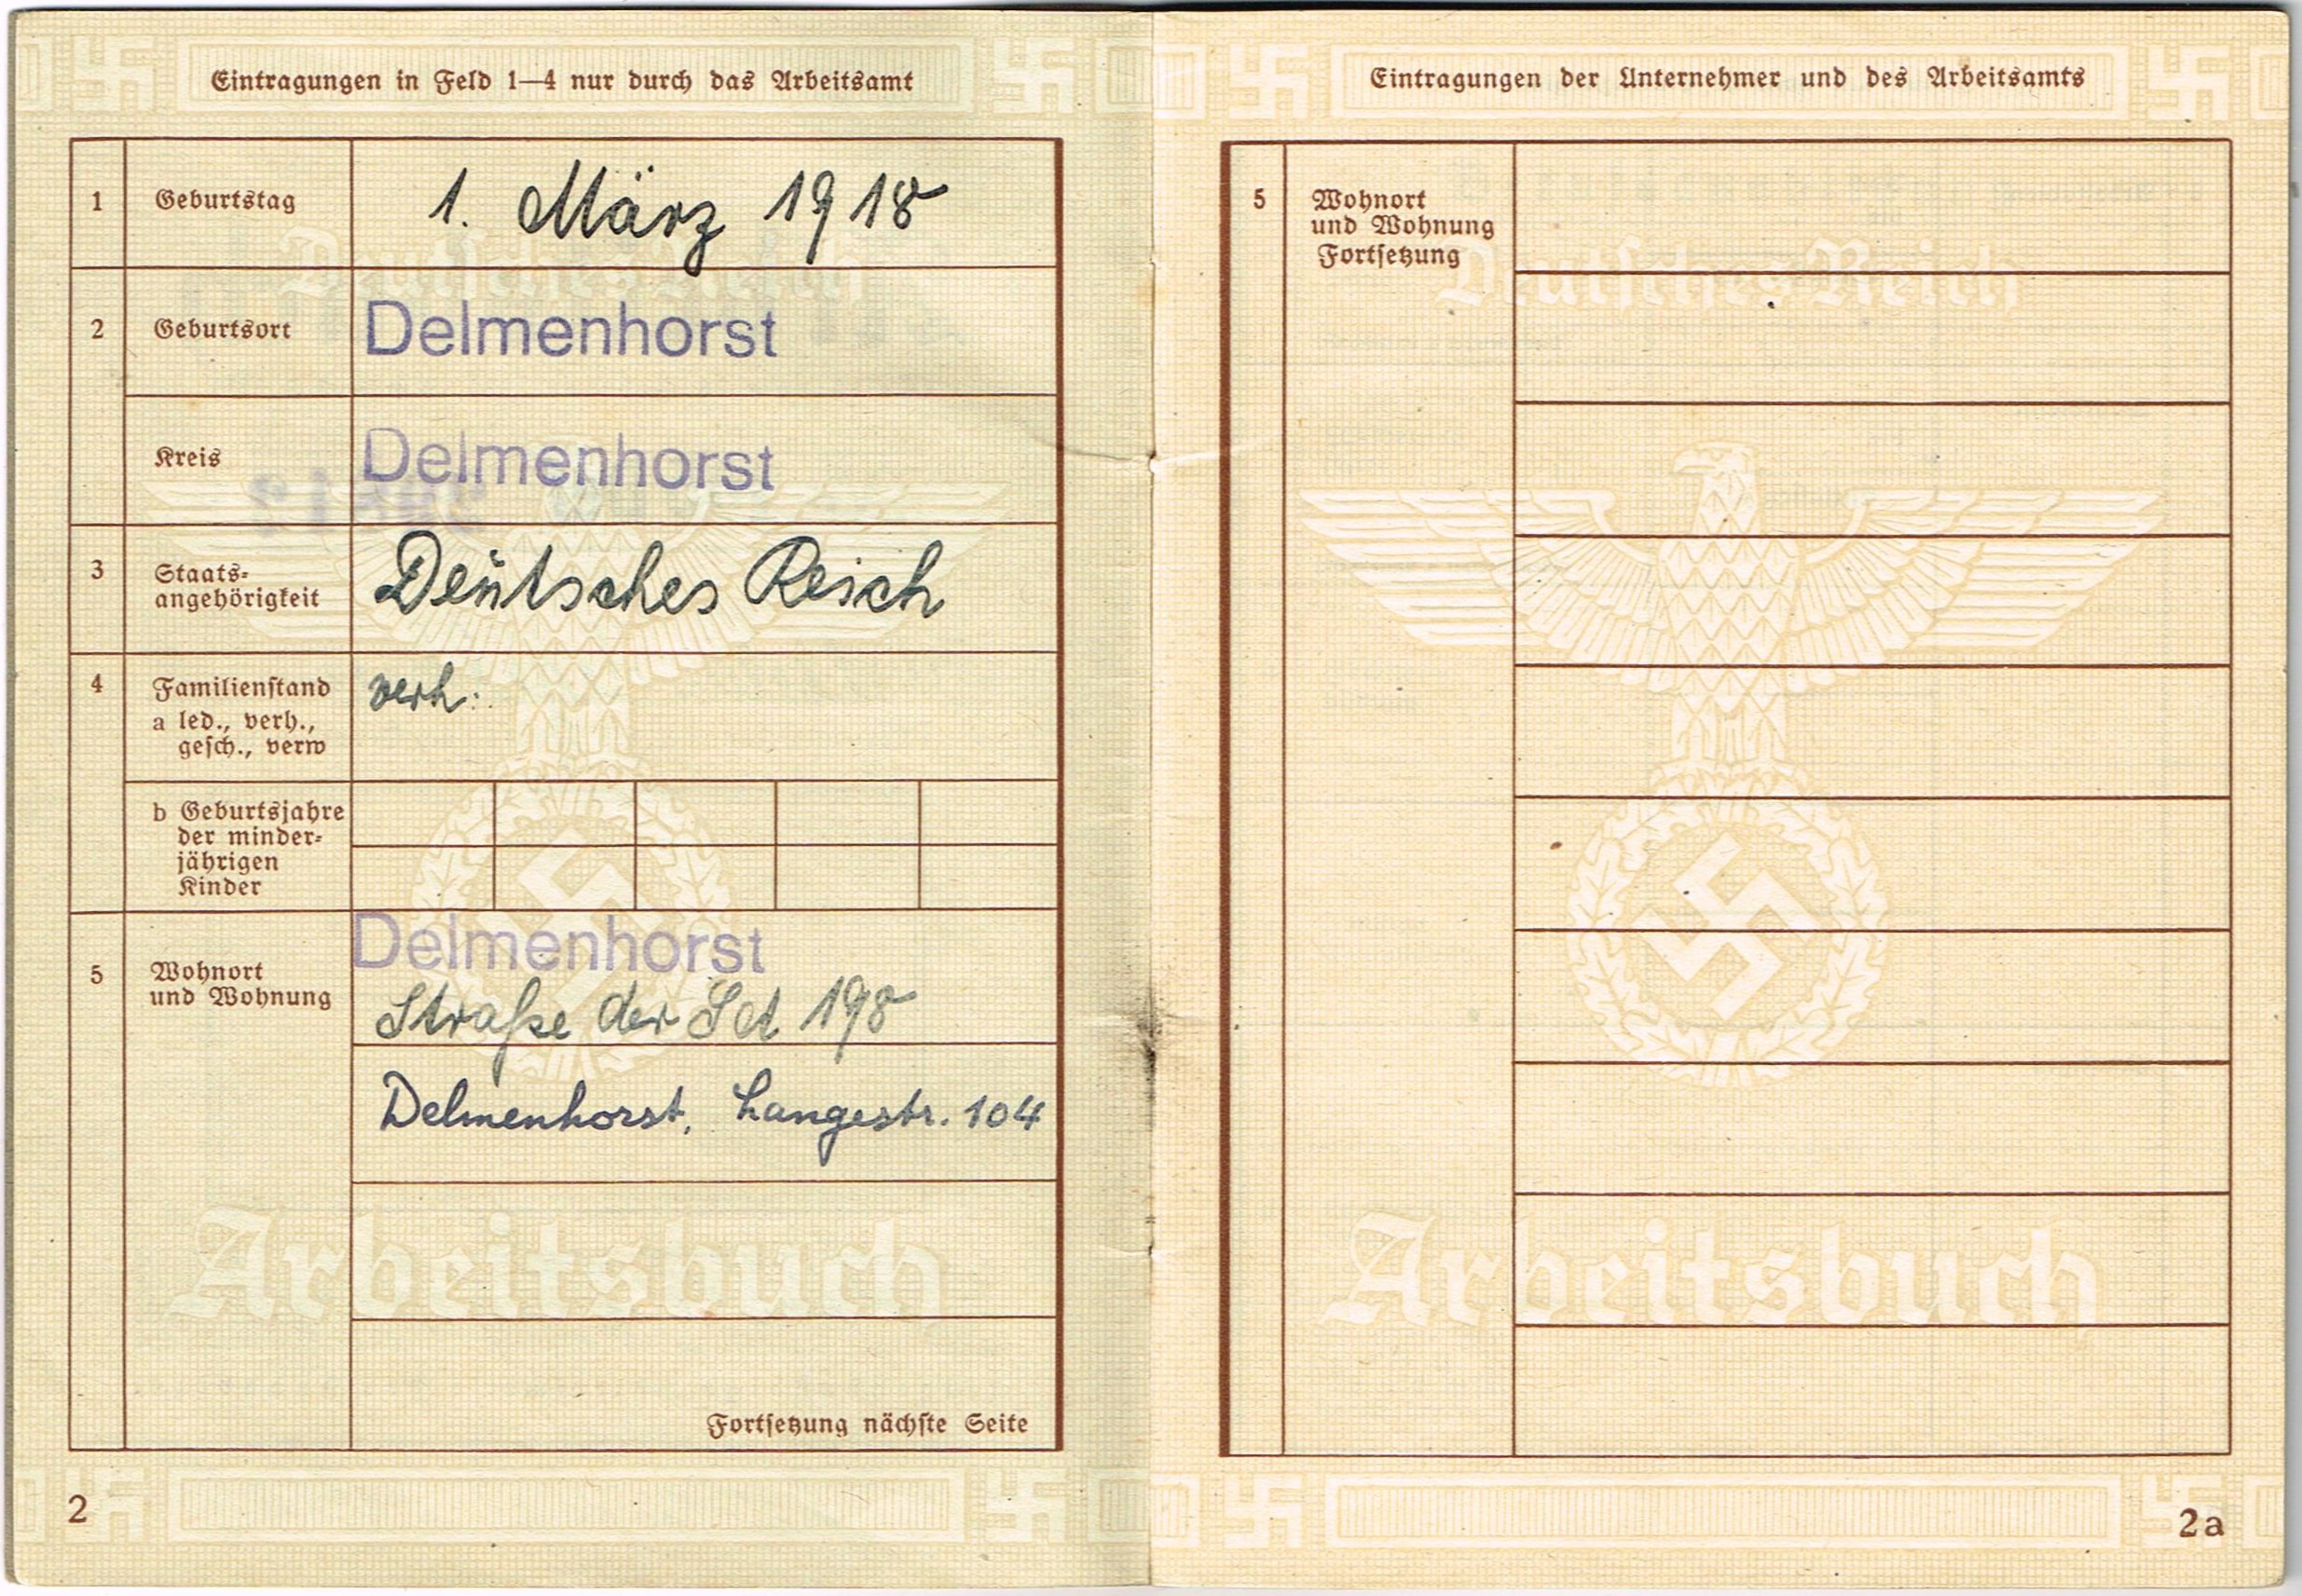 Eintragungen in Feld 1—4 nur durch das Arbeitsamt
1 Geburtstag 1. März 1918
2 Geburtsort Delmenhorst
Kreis Delmenhorst
3 Staats=
angehörigkeit Deutsches Reich
4 Familienstand verh.
a led., verh.,
gesch., verw
b Geburtsjahre
der minder=
jährigen
Kinder
Delmenhorst
5 Wohnort
und Wohnung
Straße der 198
Delmenhorst, Langestr. 104
Fortsetzung nächste Seite
2
Deutsches Reich
Arbeitsbuch
Eintragungen der Unternehmer und des Arbeitsamts
5 Wohnort
und Wohnung
Fortsetzung
Deutsches Reich
Arbeitsbuch
2a